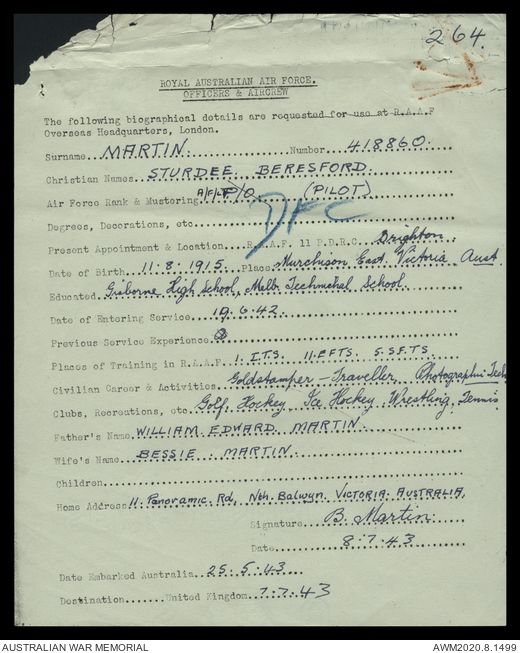 264.
ROYAL AUSTRALIAN AIR FORCE.
OFFICERS & AIRCREW
The following biographical details are requested for use at R.A.A.F
Overseas Headquarters, London.
Surname MARTIN. Number 418860.
Christian Names STURDEE BERESFORD.
Air Force Rank & Mustering A/F/LT P/O (PILOT)
Degrees, Decorations, etc DFC
Present Appointment & Location R.A.A.F. 11 P.D.R.C. Brighton
Date of Birth 11.8.1915. Place Murchison East, Victoria, Aust
Educated Gisborne High School, Melb. Technical School.
Date of Entering Service 19.6.42.
Previous Service Experience
Places of Training in R.A.A.F. 1. I.T.S. 11.EFTS 5.S.F.TS
Civilian Career & Activities Goldstamper - Traveller, Photographic
Clubs, Recreations, etc Golf, Hockey Ice Hockey Wrestling, Tennis
Father's Name WILLIAM EDWARD MARTIN.
Wife's Name BESSIE MARTIN.
Children
Home Address 11. Panoramic Rd, Nth. Balwyn. VICTORIA. AUSTRALIA.
Signature B. Martin
Date 8.7.43
Date Embarked Australia 25.5.43
Destination United Kingdom 7.7.43
AUSTRALIAN WAR MEMORIAL AWM2020.8.1499